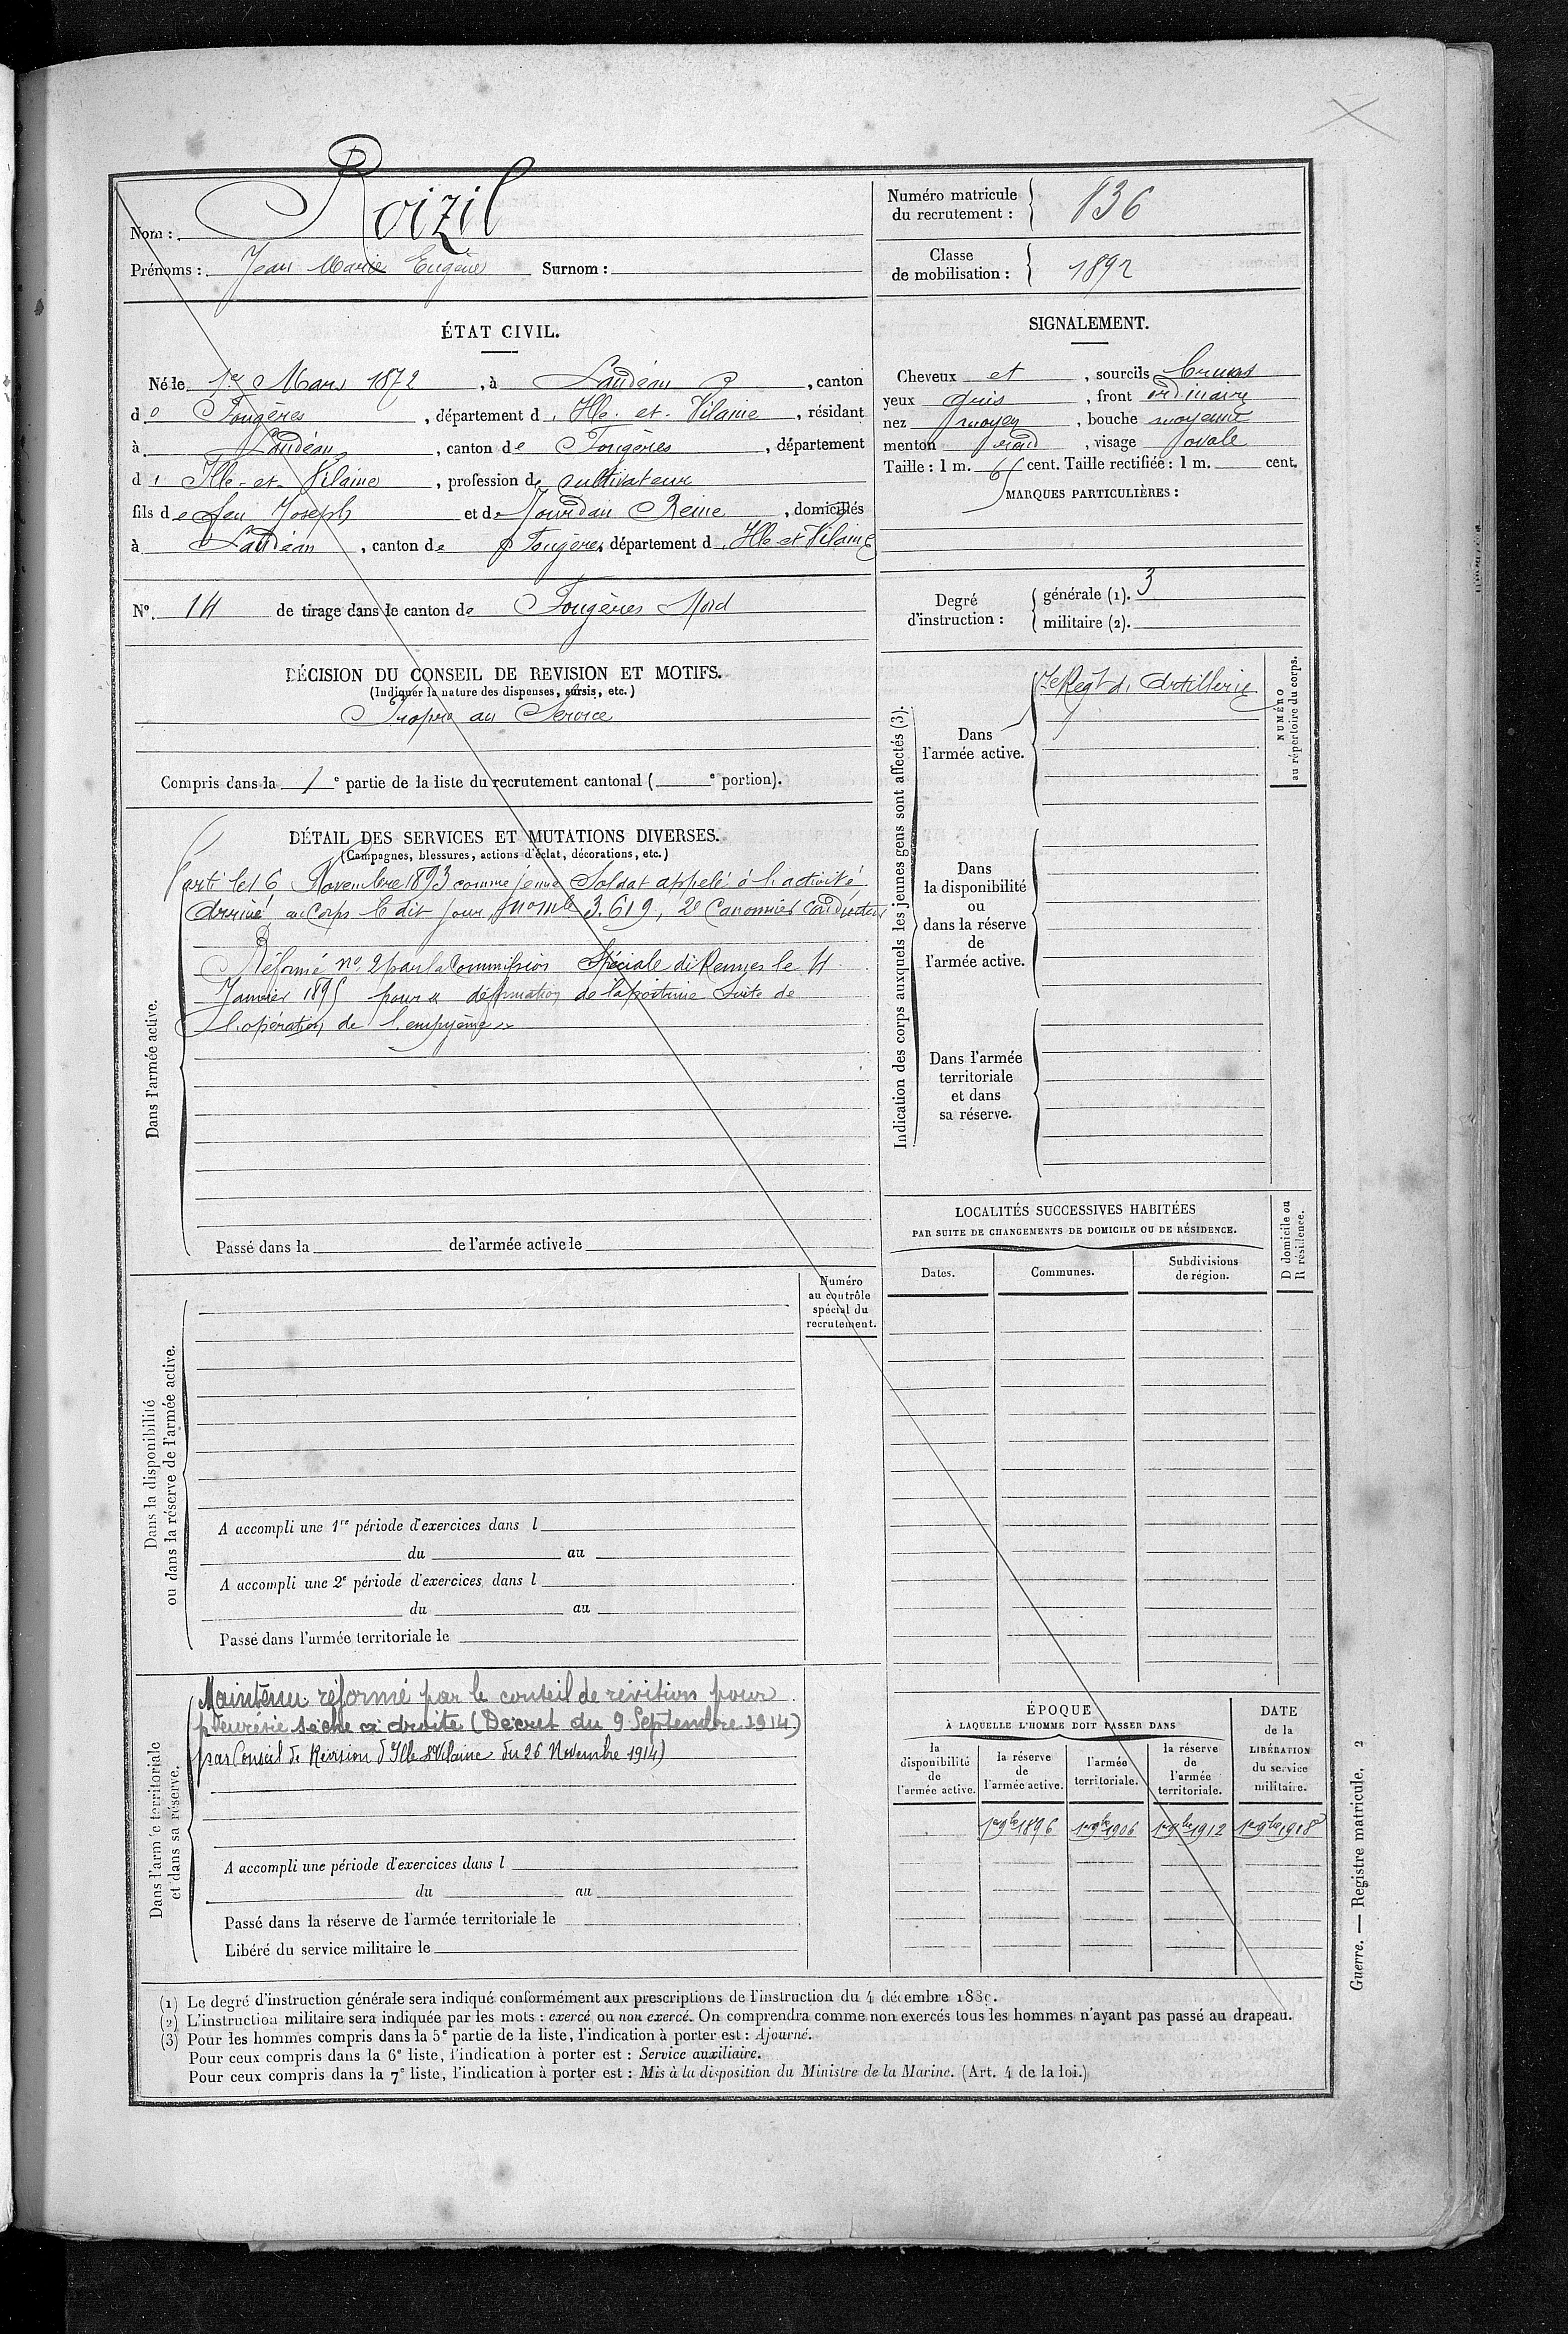 Nom : Roizil
Prénoms : Jean Marie Eugène Surnom :
Numéro matricule
du recrutement : 836
Classe
de mobilisation : 1892
ÉTAT CIVIL.
Né le 1er Mars 1872, à Landéan, canton
de Fougères, département d'Ille-et-Vilaine, résidant
à Landéan, canton de Fougères, département
d'Ille-et-Vilaine, profession de cultivateur
fils de feu Joseph et de Jourdan Reine, domiciliés
à Landéan, canton de Fougères, département d'Ille et Vilaine
No. 14 de tirage dans le canton de Fougères Nord
SIGNALEMENT.
Cheveux et, sourcils bruns
yeux gris, front ordinaire
nez moyen, bouche moyenne
menton rond, visage ovale
Taille : 1 m. 65 cent. Taille rectifiée : 1 m. cent.
MARQUES PARTICULIÈRES :
Degré
d'instruction :
générale (1). 3
militaire (2).
DÉCISION DU CONSEIL DE REVISION ET MOTIFS.
(Indiquer la nature des dispenses, sursis, etc.)
Propre au Service
Compris dans la 1e partie de la liste du recrutement cantonal ( e portion).
DÉTAIL DES SERVICES ET MUTATIONS DIVERSES.
(Campagnes, blessures, actions d'éclat, décorations, etc.)
Dans l'armée active.
Parti le 16 Novembre 1893 comme jeune Soldat appelé à l'activité
Arrivé au Corps le dit jour, no mle 3.619, 2e Canonnier Conducteur
Réformé no 2 par la Commission Spéciale de Rennes le 4
Janvier 1895 pour « déformation de la poitrine suite de
l'opération de l'empyème »
Passé dans la de l'armée active le
Indication des corps auxquels les jeunes gens sont affectés (3).
Dans
l'armée active.
Regt d'Artillerie
NUMÉRO
au répertoire du corps.
Dans
la disponibilité
ou
dans la réserve
de
l'armée active.
Dans l'armée
territoriale
et dans
sa réserve.
LOCALITÉS SUCCESSIVES HABITÉES
PAR SUITE DE CHANGEMENTS DE DOMICILE OU DE RÉSIDENCE.
Dates.
Communes.
Subdivisions
de région.
D domicile ou
R résidence.
Numéro
au contrôle
spécial du
recrutement.
Dans la disponibilité
ou dans la réserve de l'armée active.
A accompli une 1re période d'exercices dans l
du au
A accompli une 2e période d'exercices dans l
du au
Passé dans l'armée territoriale le
Dans l'armée territoriale
et dans sa réserve.
Maintenu réformé par le conseil de révision pour
pleurésie sèche à droite (Décret du 9 Septembre 1914)
par Conseil de Révision d'Ille & Vilaine du 26 Novembre 1914)
A accompli une période d'exercices dans l
du au
Passé dans la réserve de l'armée territoriale le
Libéré du service militaire le
ÉPOQUE
À LAQUELLE L'HOMME DOIT PASSER DANS
la
disponibilité
de
l'armée active.
la réserve
de
l'armée active.
l'armée
territoriale.
la réserve
de
l'armée
territoriale.
DATE
de la
LIBÉRATION
du service
militaire.
1er 9bre 1896 1er 9bre 1906 1er 9bre 1912 1er 9bre 1918
(1) Le degré d'instruction générale sera indiqué conformément aux prescriptions de l'instruction du 4 décembre 1889.
(2) L'instruction militaire sera indiquée par les mots : exercé ou non exercé. On comprendra comme non exercés tous les hommes n'ayant pas passé au drapeau.
(3) Pour les hommes compris dans la 5e partie de la liste, l'indication à porter est : Ajourné.
Pour ceux compris dans la 6e liste, l'indication à porter est : Service auxiliaire.
Pour ceux compris dans la 7e liste, l'indication à porter est : Mis à la disposition du Ministre de la Marine. (Art. 4 de la loi.)
Guerre. — Registre matricule. 2